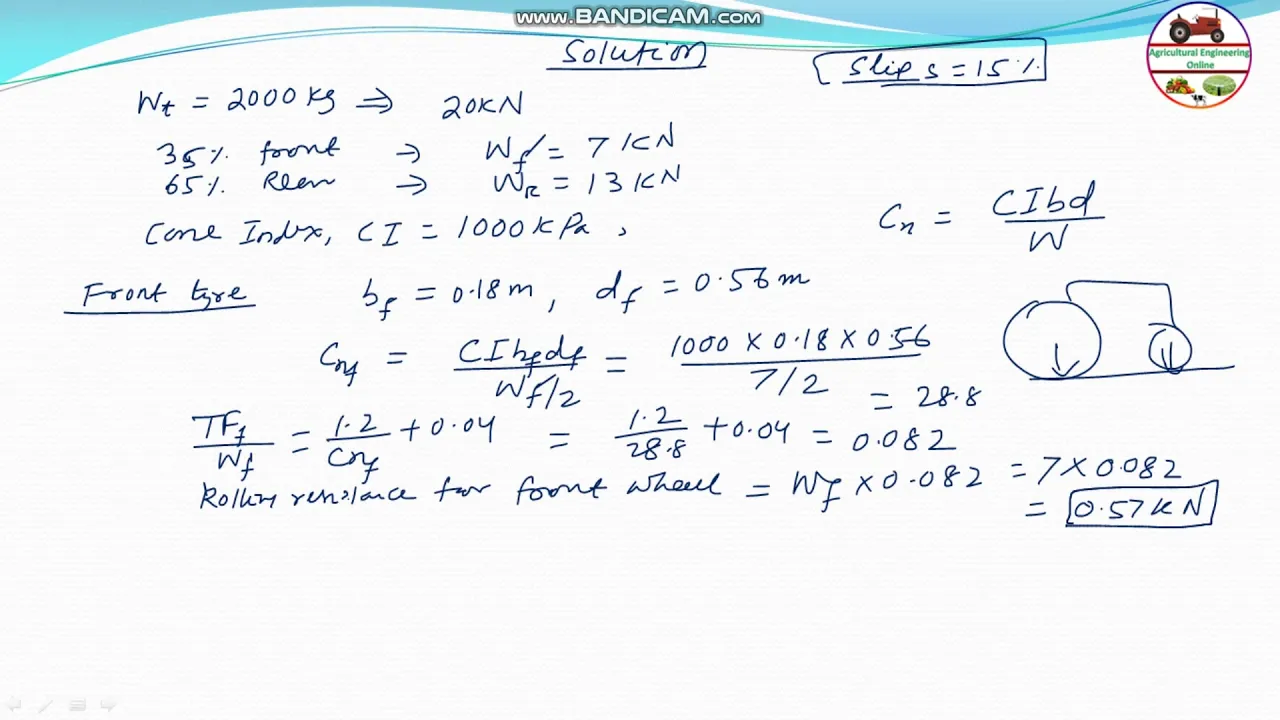 www.BANDICAM.com
Solution
Slip s = 15 %
Agricultural Engineering
Online
Wt = 2000 kg ⇒ 20 KN
35 % front → Wf = 7 KN
65 % Rear → WR = 13 KN
Cone Index, CI = 1000 K Pa,
Cn = CIbd / W
Front tyre bf = 0.18 m, df = 0.56 m
Cnf = CIbfdf / Wf/2 = 1000 x 0.18 x 0.56 / 7/2 = 28.8
TFf / Wf = 1.2 / Cnf + 0.04 = 1.2 / 28.8 + 0.04 = 0.082
Rolling resistance for front wheel = Wf x 0.082 = 7 x 0.082
= 0.57 KN